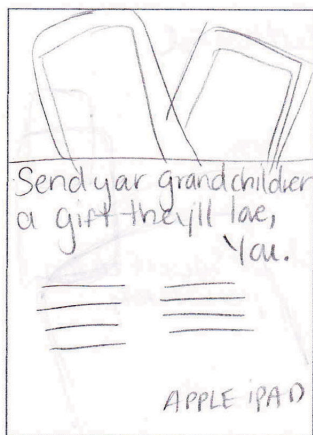 Send your grandchildren
a gift they'll love,
You.
APPLE iPAD